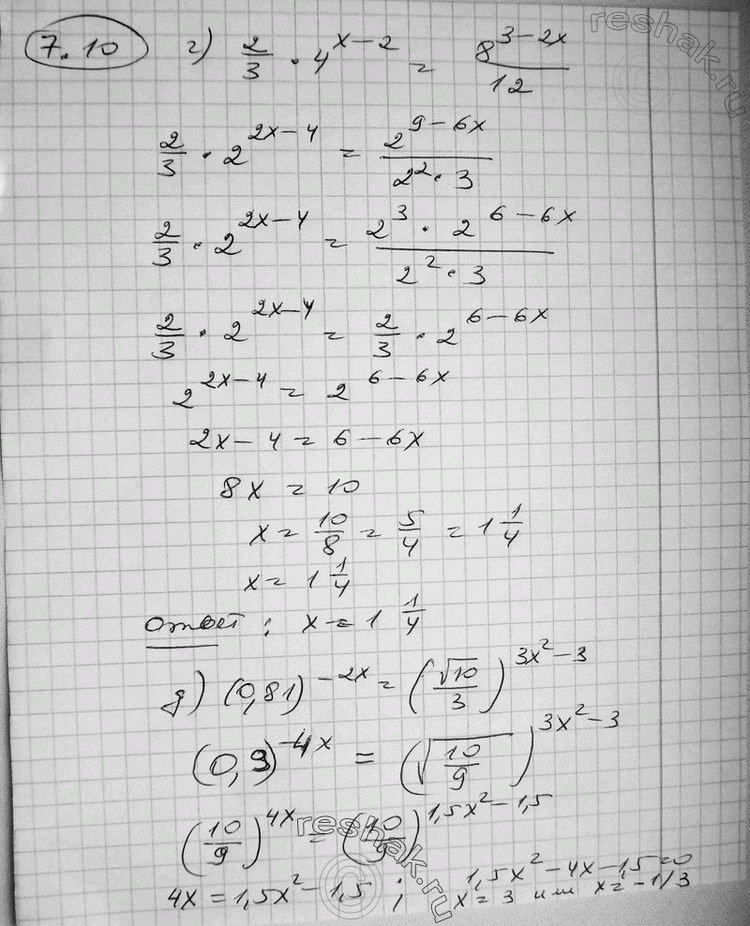 7.10 г) 2/3 · 4^(x-2) = 8^(3-2x)/12
2/3 · 2^(2x-4) = 2^(9-6x)/(2^2 · 3)
2/3 · 2^(2x-4) = (2^3 · 2^(6-6x))/(2^2 · 3)
2/3 · 2^(2x-4) = 2/3 · 2^(6-6x)
2^(2x-4) = 2^(6-6x)
2x - 4 = 6 - 6x
8x = 10
x = 10/8 = 5/4 = 1 1/4
x = 1 1/4
Ответ: x = 1 1/4
д) (0,81)^(-2x) = (√10/3)^(3x^2-3)
(0,9)^(-4x) = (√(10/9))^(3x^2-3)
(10/9)^(4x) = (10/9)^(1,5x^2-1,5)
4x = 1,5x^2 - 1,5 ; 1,5x^2 - 4x - 1,5 = 0
x = 3 или x = -1/3
reshak.ru
reshak.ru